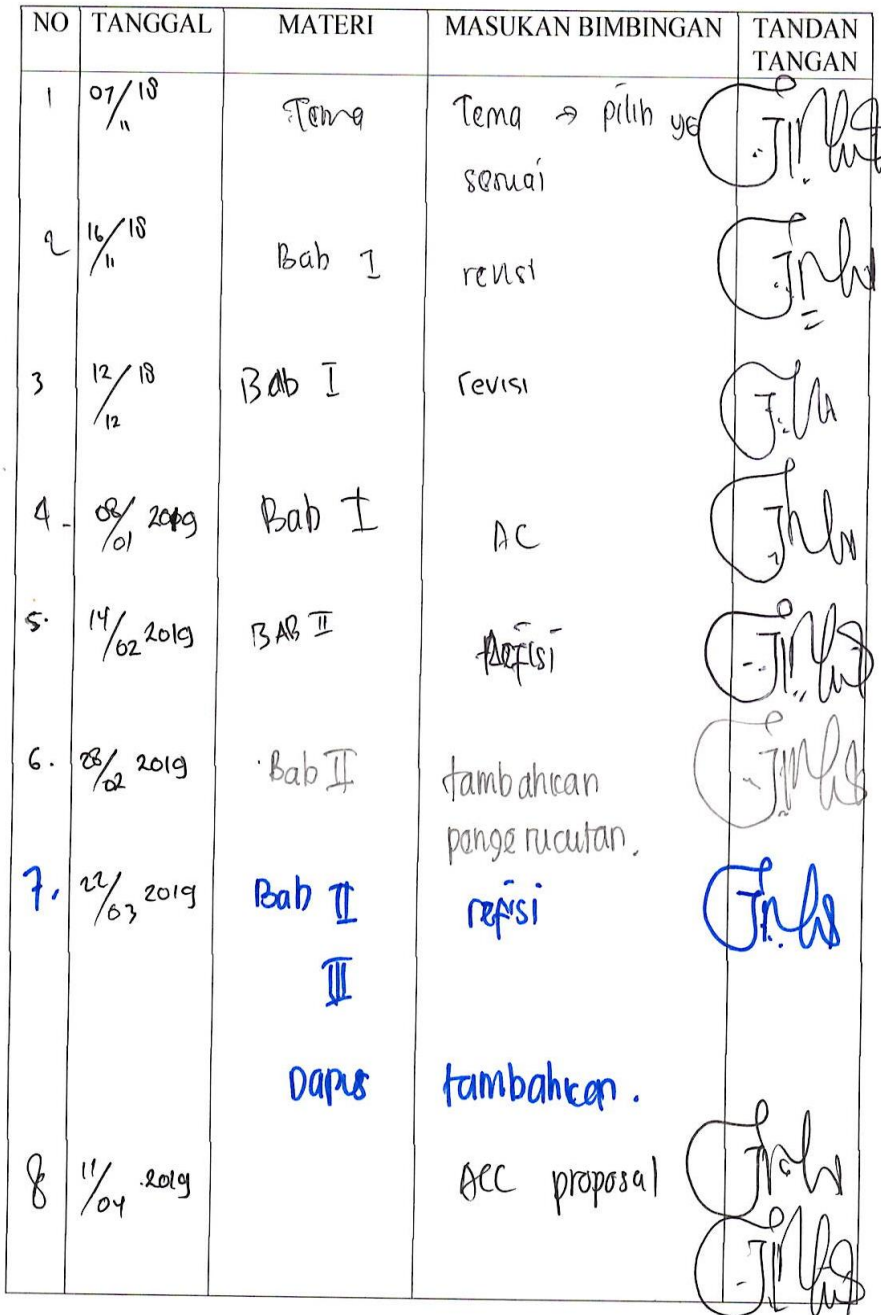 NO TANGGAL MATERI MASUKAN BIMBINGAN TANDAN
TANGAN
1 07/11 18 Tema Tema → pilih yg
sesuai
2 16/11 18 Bab I revisi
3 12/12 18 Bab I revisi
4 - 08/01 2019 Bab I AC
5. 14/02 2019 BAB II Refisi
6. 28/02 2019 Bab II tambahkan
pengerucutan.
7. 22/03 2019 Bab II refisi
III
Dapus tambahkan.
8 11/04 2019 ACC proposal